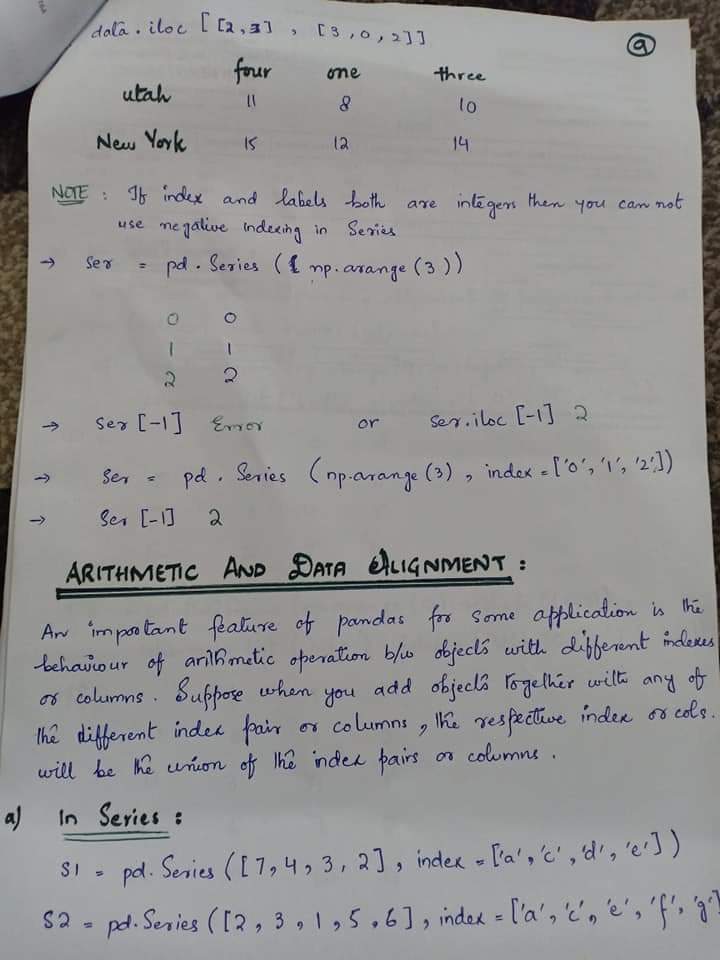 data.iloc [[2,3] , [3,0,2]]
9
four one three
utah 11 8 10
New York 15 12 14
NOTE : If index and labels both are integers then you can not
use negative indexing in Series
→ ser = pd.Series ( np.arange(3))
0 0
1 1
2 2
→ ser [-1] Error or ser.iloc [-1] 2
→ Ser = pd.Series (np.arange(3), index = ['0','1','2'])
→ Ser [-1] 2
ARITHMETIC AND DATA ALIGNMENT :
An important feature of pandas for some application is the
behaviour of arithmetic operation b/w objects with different indexes
or columns. Suppose when you add objects together with any of
the different index pair or columns, the respective index or cols.
will be the union of the index pairs or columns.
a) In Series :
S1 = pd.Series ([7,4,3,2], index = ['a','c','d','e'])
S2 = pd.Series ([2,3,1,5,6], index = ['a','c','e','f','g']